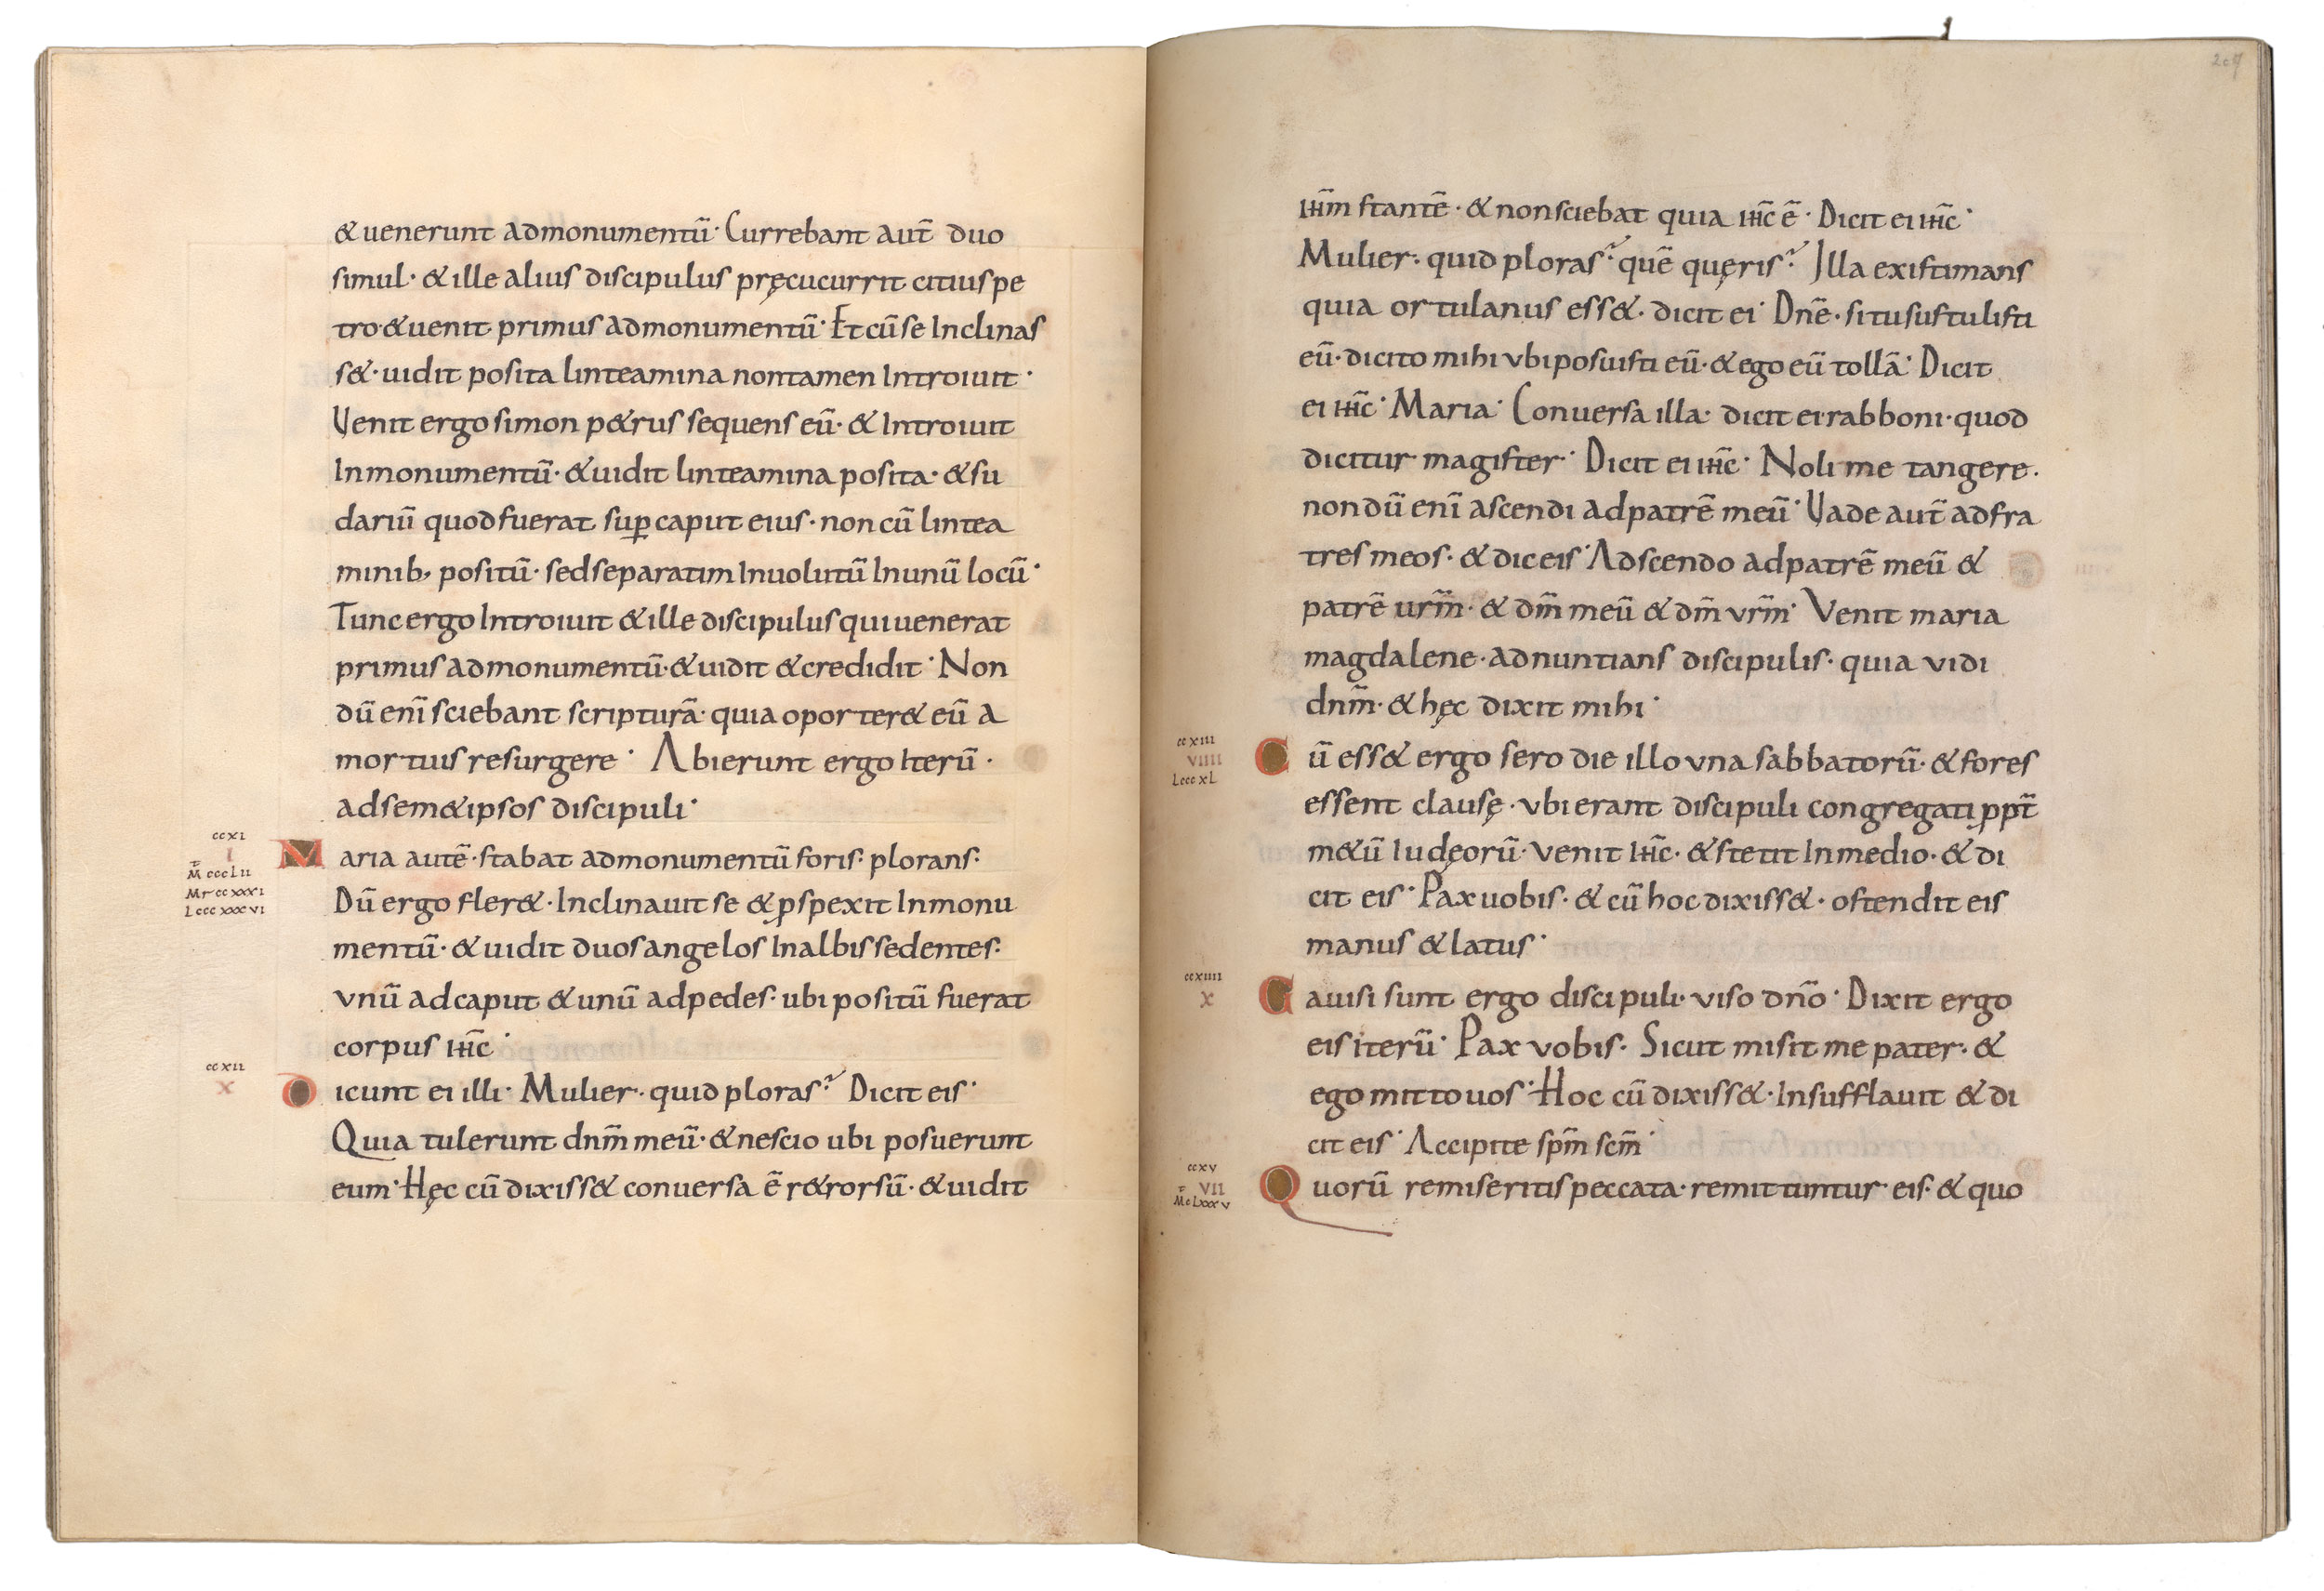 & uenerunt admonumentū· Currebant aut̄ duo
simul· & ille alius discipulus pręcucurrit citius pe
tro· & uenit primus admonumentū· Et cū se Inclinas
s&· uidit posita linteamina nontamen Introiuit·
Venit ergo simon p&rus sequens eū· & Introiuit
Inmonumentū· & uidit linteamina posita· & su
dariū quod fuerat suꝑ caput eius· non cū lintea
minib; positū· sed separatim Inuolutū Inunū locū·
Tunc ergo Introiuit & ille discipulus qui uenerat
primus admonumentū· & uidit & credidit· Non
dū enī sciebant scripturā· quia oporter& eū a
mortuis resurgere· Abierunt ergo Iterū·
adsem&ipsos discipuli·
ccxi
I
M̄ cccLii
Mr ccxxxi
Lccc xxxvi
Maria autē· stabat admonumentū foris· plorans·
Dū ergo fler&· Inclinauit se & ꝑspexit Inmonu
mentū· & uidit duos angelos Inalbis sedentes·
vnū adcaput & unū adpedes· ubi positū fuerat
corpus iħc̄·
ccxii
x
Dicunt ei illi· Mulier· quid ploras? Dicit eis·
Quia tulerunt dnm̄ meū· & nescio ubi posuerunt
eum· Hęc cū dixiss& conuersa ē r&rorsū· & uidit
209
iħm̄ stantē· & non sciebat quia iħc̄ ē· Dicit ei iħc̄·
Mulier· quid ploras? quē quęris? Illa existimans
quia ortulanus ess&· dicit ei· Dnē· si tu sustulisti
eū· dicito mihi vbi posuisti eū· & ego eū tollā· Dicit
ei iħc̄· Maria· Conuersa illa· dicit ei rabboni· quod
dicitur magister· Dicit ei iħc̄· Noli me tangere·
nondū enī ascendi adpatrē meū· Uade aut̄ adfra
tres meos· & dic eis· Adscendo adpatrē meū &
patrē urm̄· & dm̄ meū & dm̄ vrm̄· Venit maria
magdalene· adnuntians discipulis· quia vidi
dnm̄· & hęc dixit mihi·
ccxiii
viiii
Lccc xL
Cū ess& ergo sero die illo vna sabbatorū· & fores
essent clausę· vbi erant discipuli congregati ꝓpt̄
m&ū Iudęorū· venit iħc̄· & stetit Inmedio· & di
cit eis· Pax uobis· & cū hoc dixiss&· ostendit eis
manus & latus·
ccxiiii
x
Gauisi sunt ergo discipuli· viso dnō· Dixit ergo
eis iterū· Pax vobis· Sicut misit me pater· &
ego mitto uos· Hoc cū dixiss&· Insufflauit & di
cit eis· Accipite spm̄ scm̄·
ccxv
VII
M̄ cLxxxv
Quorū remiseritis peccata· remittuntur eis· & quo